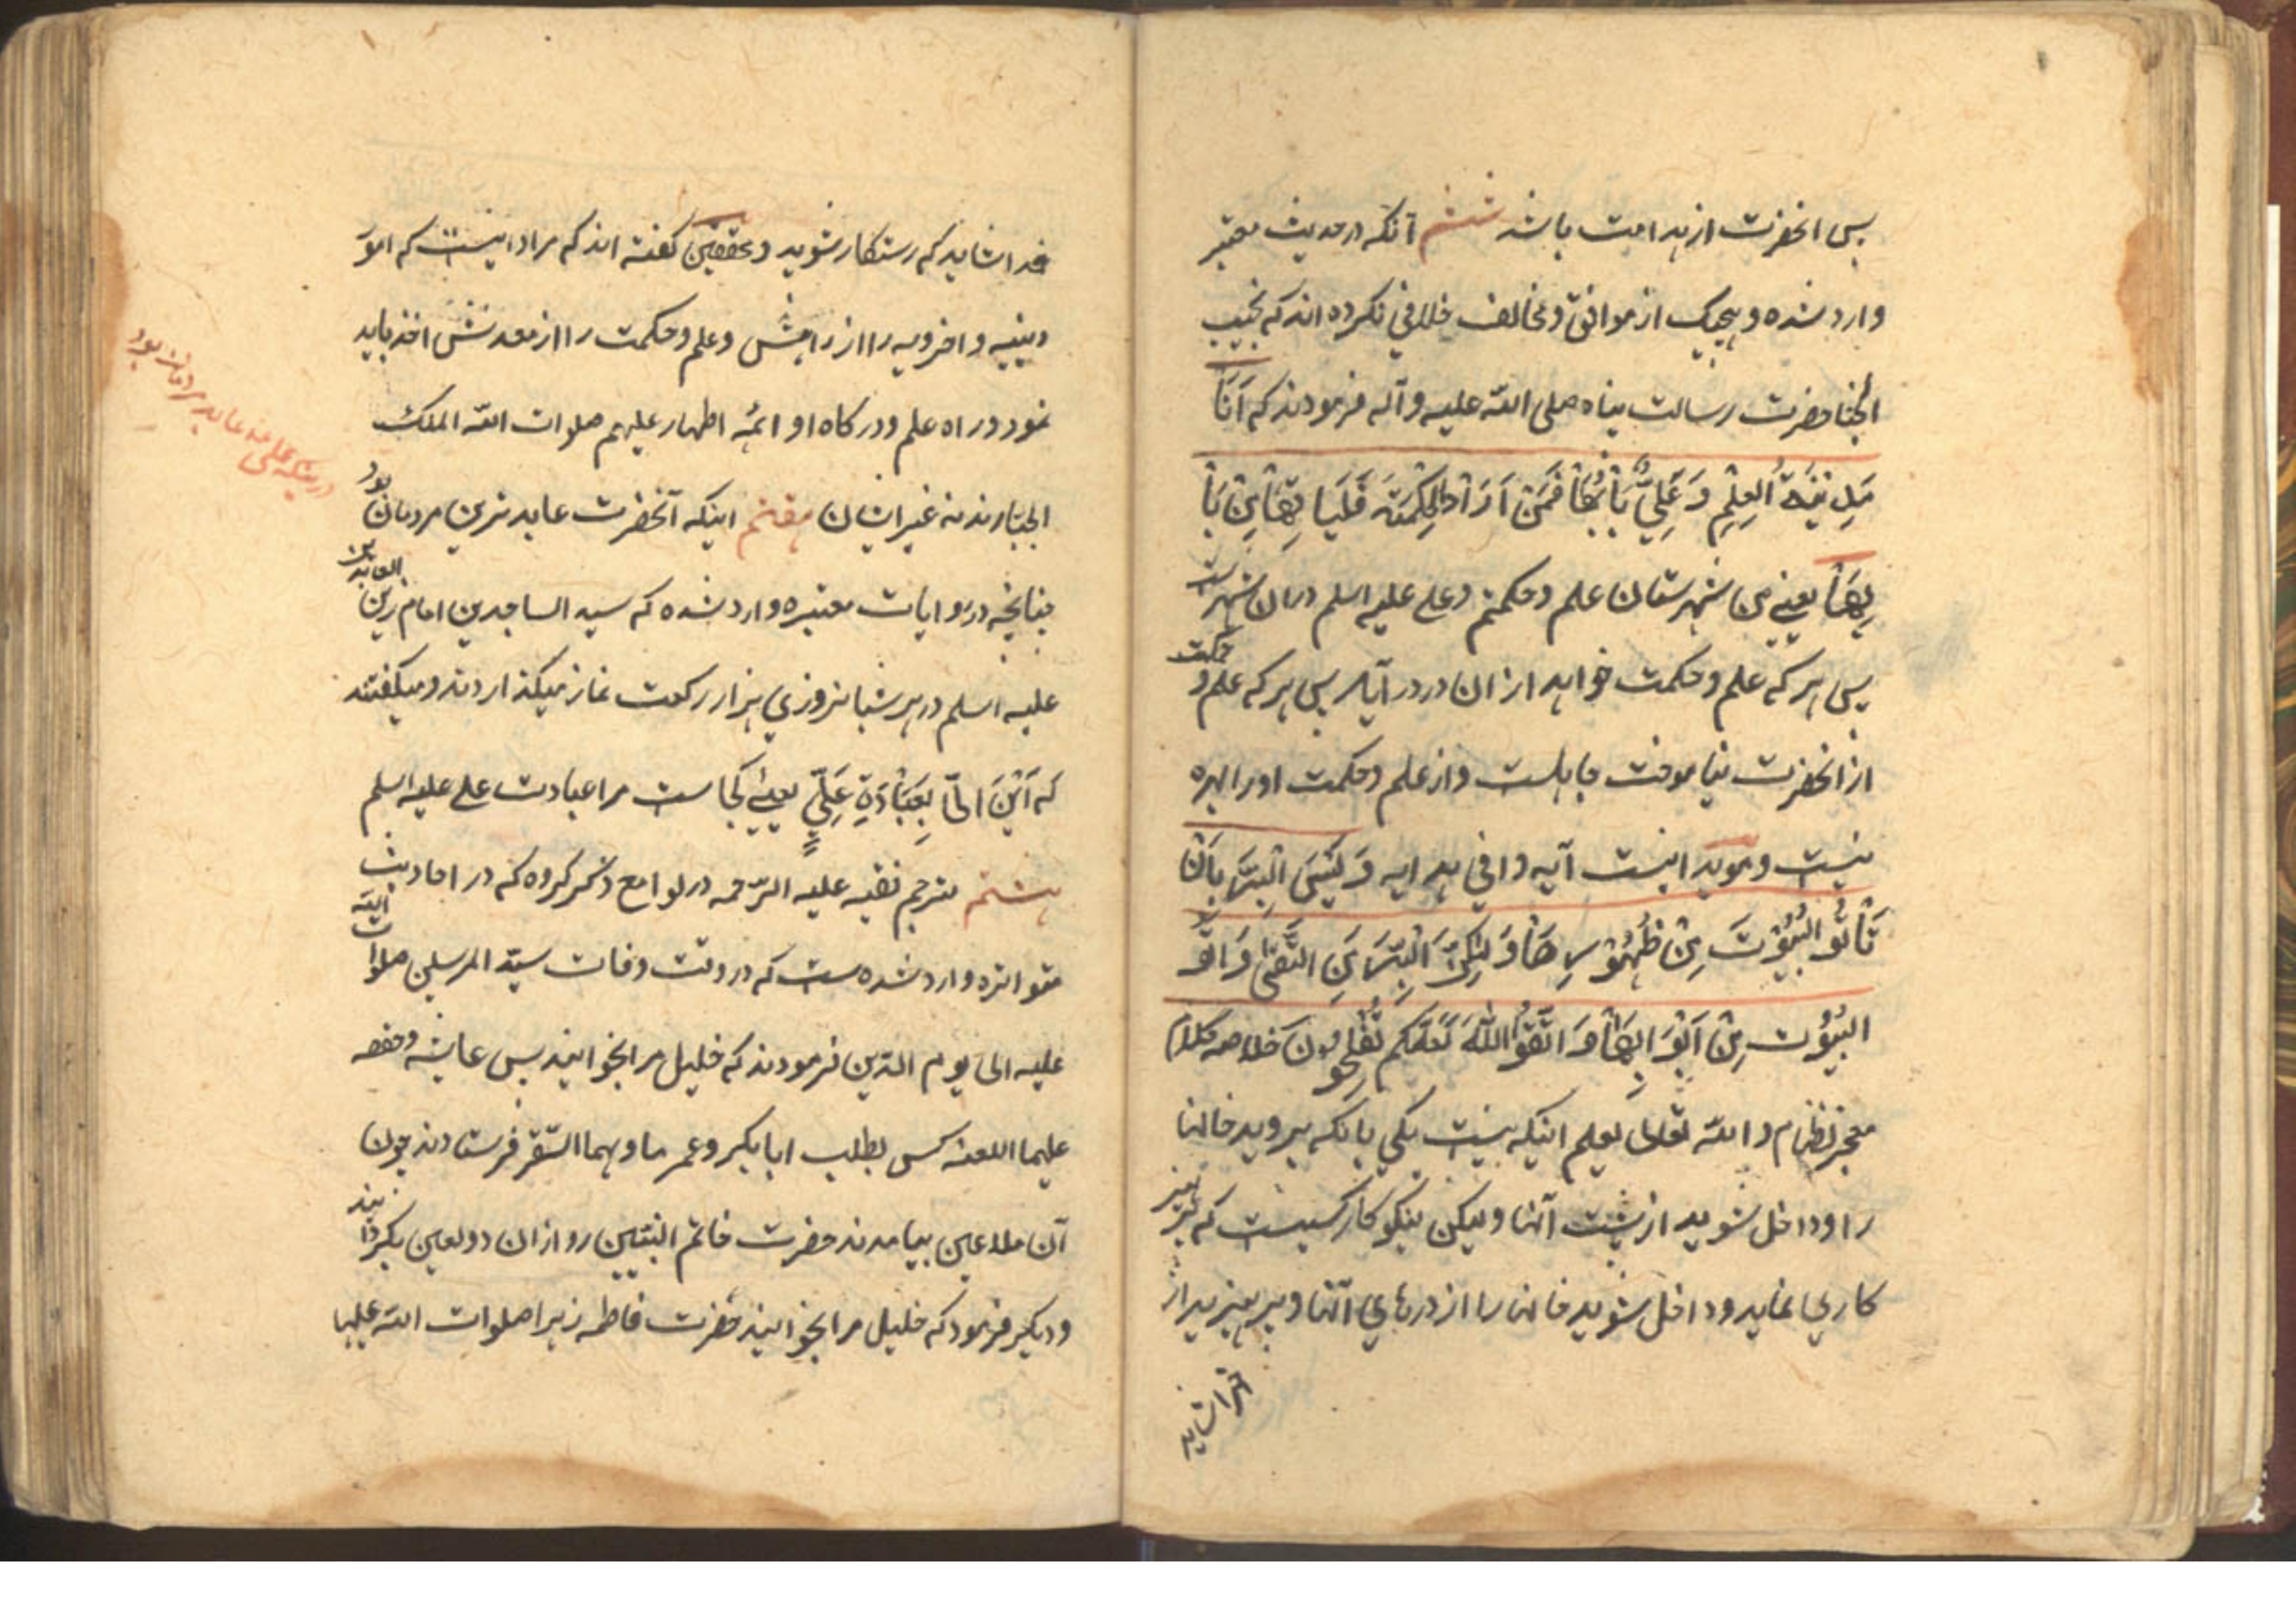 پس انحضرت از هدا امت باشد ششم آنکه در حدیث معتبر
وارد شده و هیچیک از موافق و مخالف خلافی نکرده اند که نجیب
الجنا حضرت رسالت پناه صلی الله علیه و آله فرمودند که اَنَا
مَدِینَةُ الْعِلْمِ وَ عَلِیٌّ بَابُهَا فَمَنْ اَرَادَ الْحِکْمَتَهَ فَلْیَاتِهَا مِنْ بَا
بِهَا یعنی من شهرستان علم و حکمتم و علی علیه اسلم در ان شهرست
پس هر که علم و حکمت خواهد از ان در در آید پس هر که علم و حکمت
از انحضرت نیاموخت جاهلست و از علم و حکمت او را بهره
نیست و موید اینست آیه وافی هدایه وَ لَیْسَ الْبِرَّ بِاَنْ
تَأتُو الْبُیُوْتَ مِنْ ظُهُوْرِهَا وَ لٰکِنَّ الْبِرَّ مَنِ اتَّقٰی وَ اْتُو
الْبُیُوْت مِنْ اَبْوَابِهَا وَ اتَّقُوا اللّٰهَ لَعَلَّکُم تُفْلِحُوْنَ خلاصه کلام
معجز نظام و الله تعالی یعلم اینکه نیست نیکی بانکه بروید خانها
را و داخل شوید از پشت آنها و لیکن نیکو کار کسیست که پرهیز
کاری نماید و داخل شوید خانها را از درهای انها و بپرهیزید از
خدا شاید که رستکار شوید و محققین کفته اند که مراد اینست که امور
دینیه و اخرویه را از راهش و علم و حکمت را از معدنش اخذ باید
نمود در راه علم و در کاه او ائمه اطهار علیهم صلوات الله الملک
الجبارند نه غیر ایشان هفتم اینکه آنحضرت عابد ترین مردمان بود
چنانچه در روایات معتبره وارد شده که سید الساجدین امام زین العابدین
علیه اسلم در هر شبانروزی هزار رکعت نماز میکذاردند و میکفتند
که اَیْنَ الیّ بِعِبَادَةِ عَلِیٍّ یعنی کجاست مرا عبادت علی علیه اسلم
هشتم مترجم فقیه علیه الرّحمه در لوامع ذکر کرده که در احادیث
متواتره وارد شده ست که در وقت وفات سیّد المرسلین صلوات الله
علیه الی یوم الدّین فرمودند که خلیل مرا بخوانید پس عایشه و حفصه
علیهما اللعنه کس بطلب ابابکر و عمر ماویهما السّقر فرستادند چون
آن ملاعین بیامدند حضرت خاتم النبّیین رو از ان دو لعین بکردانیدند
و دیکر فرمود که خلیل مرا بخوانید حضرت فاطمه زهرا صلوات الله علیها